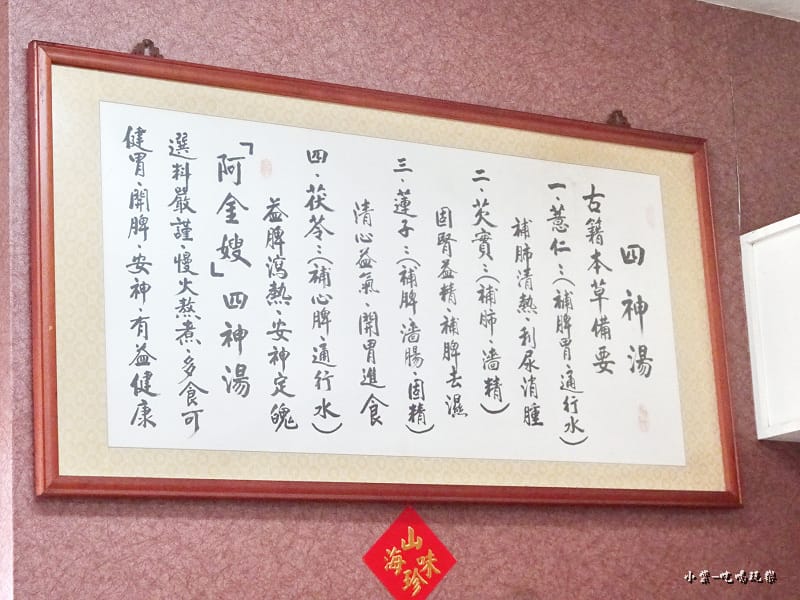 四神湯
古籍本草備要
一、薏仁…(補脾胃、通行水)
補肺清熱、利尿消腫
二、芡實…(補肺、濇精)
固腎益精、補脾去濕
三、蓮子…(補脾濇腸、固精)
清心益氣、開胃進食
四、茯苓…(補心脾、通行水)
益脾瀉熱、安神定魄
「阿金嫂」四神湯
選料嚴謹、慢火熬煮、多食可
健胃、開脾、安神、有益健康
山珍海味
小紫-吃喝玩樂